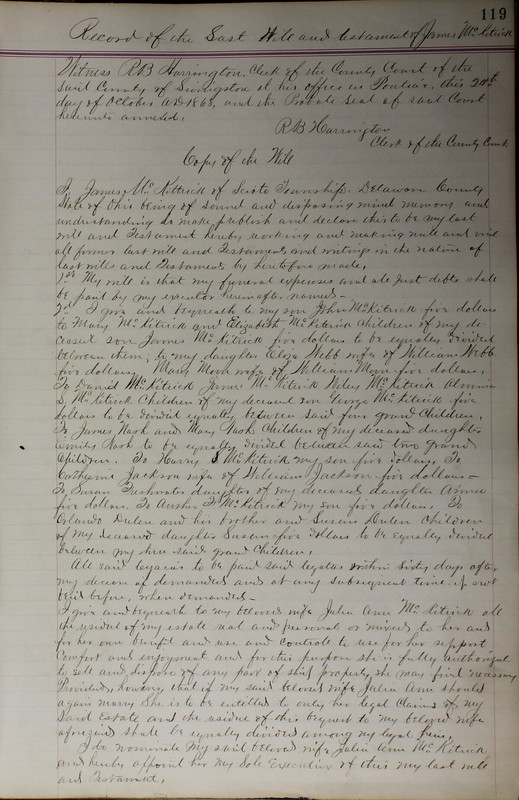 119
Record of the Last Will and testament of James McKitrick
Witness RB Harrington, Clerk of the County Court of the
said County of Livingston at his office in Pontiac, this 24th
day of October AD 1868, and the Probate Seal of said Court
hereunto annexed.
RB Harrington
Clerk of the County Court
Copy of the Will
I, James McKitrick of Scioto Township Delaware County
State of Ohio being of sound and disposing mind memory and
understanding do make publish and declare this to be my last
will and Testament hereby revoking and making null and void
all former last will and Testaments and writings in the nature of
last wills and Testaments by heretofore made.
1st My will is that my funeral expenses and all just debts shall
be paid by my executor hereinafter named—
I give and bequeath to my son John McKitrick five dollars
to Mary McKitrick and Elizabeth McKitrick children of my de-
ceased son James McKitrick five dollars to be equally divided
between them; to my daughter Eliza Webb wife of William Webb
five dollars, Mary Morn wife of William Morn five dollars,
To Daniel McKitrick James McKitrick Wiley McKitrick
S. McKitrick Children of my deceased son George McKitrick five
dollars to be divided equally between said four grand Children.
To James Nash and Mary Nash Children of my deceased daughter
Nash to be equally divided between said two grand
Children. To Harry S McKitrick my son five dollars, To
Catharine Jackson wife of William Jackson five dollars—
To Susan Freshwater daughter of my deceased daughter
five dollars, To McKitrick my son five dollars, To
Orlando Dulen and his brother and Susan Dulen Children
of my deceased daughter Susan five dollars to be equally divided
between my three said grand Children,
All said legacies to be paid said legatees within Sixty days after
my decease if demanded and at any subsequent time if not
paid before, when demanded—
I give and bequeath to my beloved wife Julia Ann McKitrick all
the residue of my estate real and personal or mixed, to her and
for her own benefit and use and controle to use for her support
comfort and enjoyment and for this purpose she is fully authorized
to sell and dispose of any part of said property she may find necessary
Provided, however, that if my said beloved wife Julia Ann should
again marry she is to be entitled to only her legal Claims of my
Said Estate and the residue of this bequest to my beloved wife
aforesaid shall be equally divided among my legal heirs.
I do nominate My said beloved wife Julia Ann McKitrick
and hereby appoint her my Sole Executrix of this my last will
and Testament.